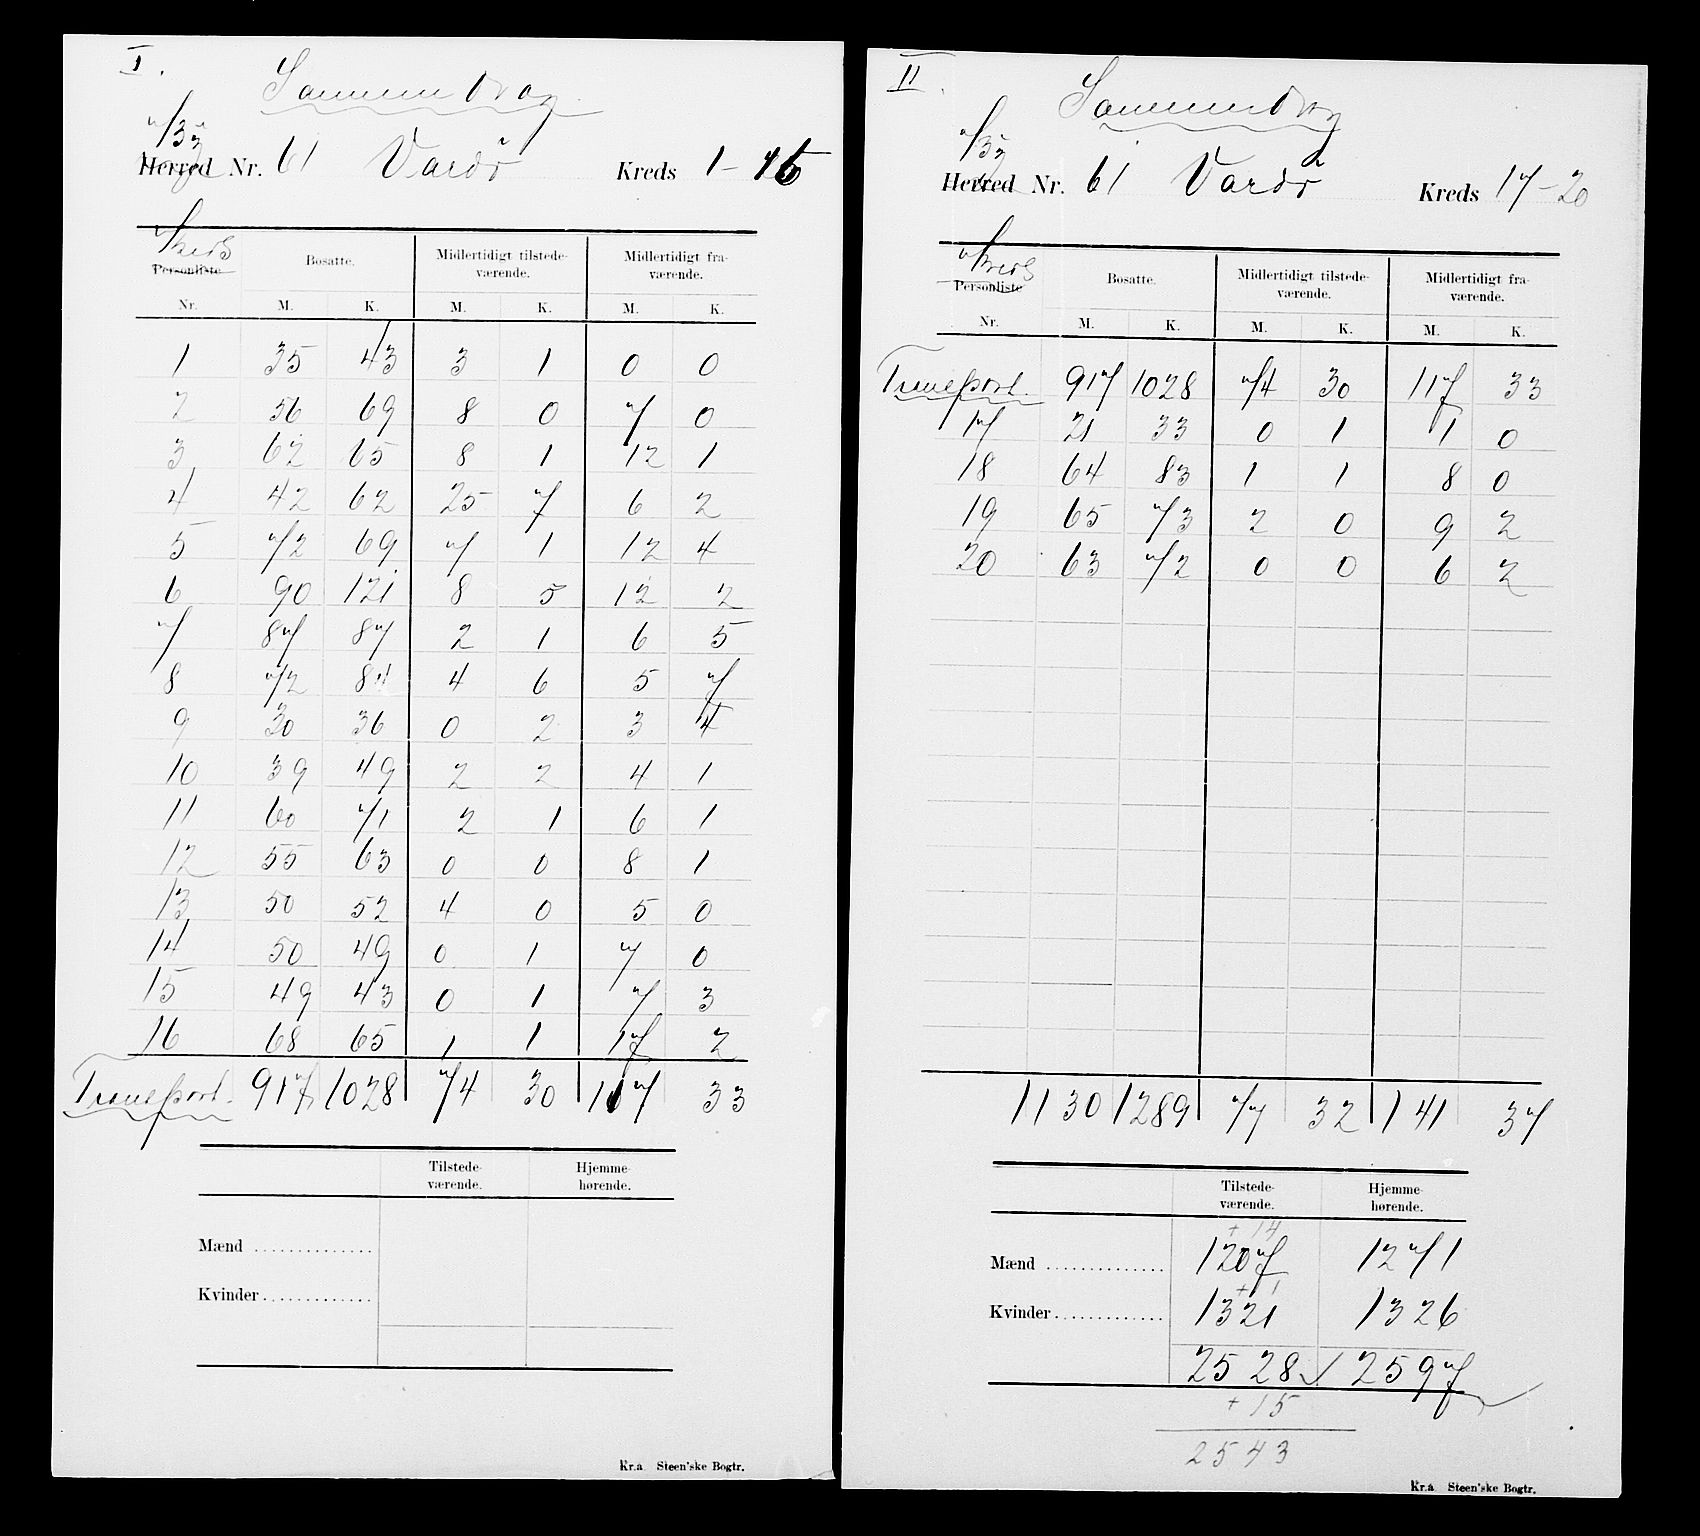 I.
Sammendrag.
By
Herred Nr. 61 Vardö Kreds 1-16
Kreds
Personliste Bosatte. Midlertidigt tilstede- Midlertidigt fra-
værende. værende.
Nr. M. K. M. K. M. K.
1 35 43 3 1 0 0
2 56 69 8 0 7 0
3 62 65 8 1 12 1
4 42 62 25 7 6 2
5 72 69 7 1 12 4
6 90 121 8 5 12 2
7 87 87 2 1 6 5
8 72 84 4 6 5 7
9 30 36 0 2 3 4
10 39 49 2 2 4 1
11 60 71 2 1 6 1
12 55 63 0 0 8 1
13 50 52 4 0 5 0
14 50 49 0 1 7 0
15 49 43 0 1 7 3
16 68 65 1 1 17 2
Transport. 917 1028 74 30 117 33
Tilstede- Hjemme-
værende. hørende.
Mænd ..............
Kvinder .............
Kr.a Steen'ske Bogtr.
II.
Sammendrag
By
Herred Nr. 61 Vardö Kreds 17-20
Kreds
Personliste Bosatte. Midlertidigt tilstede- Midlertidigt fra-
værende. værende.
Nr. M. K. M. K. M. K.
Transport. 917 1028 74 30 117 33
17 21 33 0 1 1 0
18 64 83 1 1 8 0
19 65 73 2 0 9 2
20 63 72 0 0 6 2
1130 1289 77 32 141 37
Tilstede- Hjemme-
værende. hørende.
+ 14
Mænd .............. 1207 1271
+ 1
Kvinder ............. 1321 1326
2528 2597
+ 15
2543
Kr.a Steen'ske Bogtr.